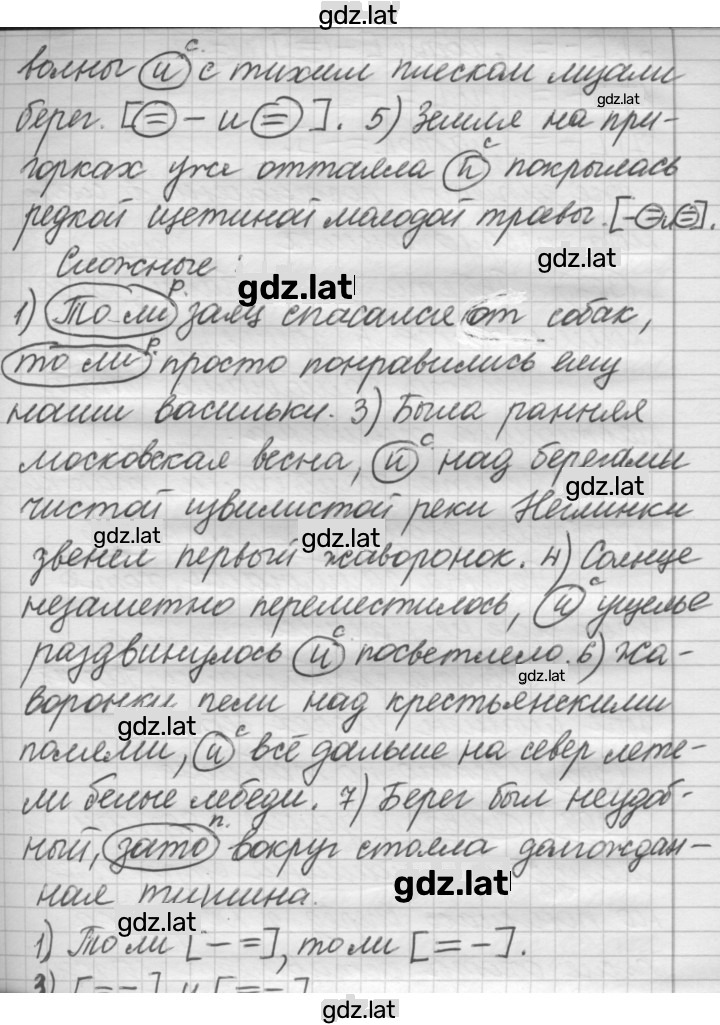 gdz.lat
волны и с. с тихим плеском лизали
gdz.lat
берег. [= – и =]. 5) Земля на при-
горках уже оттаяла и с покрылась
редкой щетиной молодой травы. [-= и =].
gdz.lat
Сложные :
gdz.lat
1) То ли р. заяц спасался от собак,
то ли р. просто понравились ему
наши васильки. 3) Была ранняя
московская весна, и с над берегами
gdz.lat
чистой извилистой реки Неглинки
gdz.lat gdz.lat
звенел первый жаворонок. 4) Солнце
незаметно переместилось, и с ущелье
раздвинулось и с посветлело. 6) Жа-
gdz.lat
воронки пели над крестьянскими
gdz.lat
полями, и с всё дальше на север лете-
ли белые лебеди. 7) Берег был неудоб-
ный, зато п. вокруг стояла долгождан-
ная тишина.
gdz.lat
gdz.lat
1) То ли [– =], то ли [= –].
3) [= –], и [= –]
gdz.lat